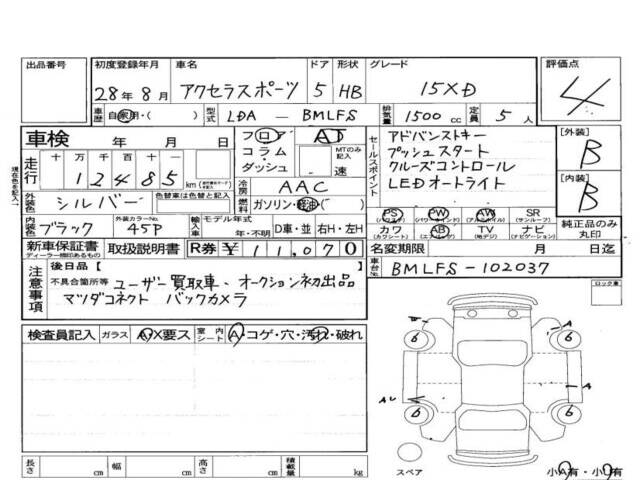 出品番号 初度登録年月 車名 ドア 形状 グレード 評価点
28年8月 アクセラスポーツ 5 HB 15XD 4
車歴 自家用・( ) 型式 LDA - BMLFS 排気量 1500 cc 定員 5 人
車検 年 月 日 フロア AT アドバンストキー [外装]
走行 十万千百十一 コラム・ MTのみ記入 プッシュスタート B
1 2 4 8 5 km ダッシュ 速 セールスポイント クルーズコントロール
外装色 シルバー 色替車は色替と記入 冷房 AAC LEDオートライト [内装]
燃料 ガソリン・軽油( ) B
内装色 ブラック 外装カラーNo. 45P 輸入車 モデル年式 年・不明 D車・並 右H・左H
PS PW AW SR 純正品のみ
カワ AB TV ナビ 丸印
(パワステ) (パワーウインド) (アルミホイール) (サンルーフ)
(カワシート) (エアバッグ) (地デジ) (ナビゲーション)
新車保証書 取扱説明書 R券 ¥11,070 名変期限 月 日迄
ディーラー捺印あるもの
車台No. BMLFS-102037
注意事項 後日品【 】
不具合箇所等 ユーザー買取車、オークション初出品
マツダコネクト バックカメラ
現在色を記入→
ロック車
検査員記入 ガラス A・X要ス 室内シート A・コゲ・穴・汚れ・破れ
W A
6 6
A
6 6
長さ cm 幅 cm 高さ cm 積載量 kg
スペア 小A有・小U有